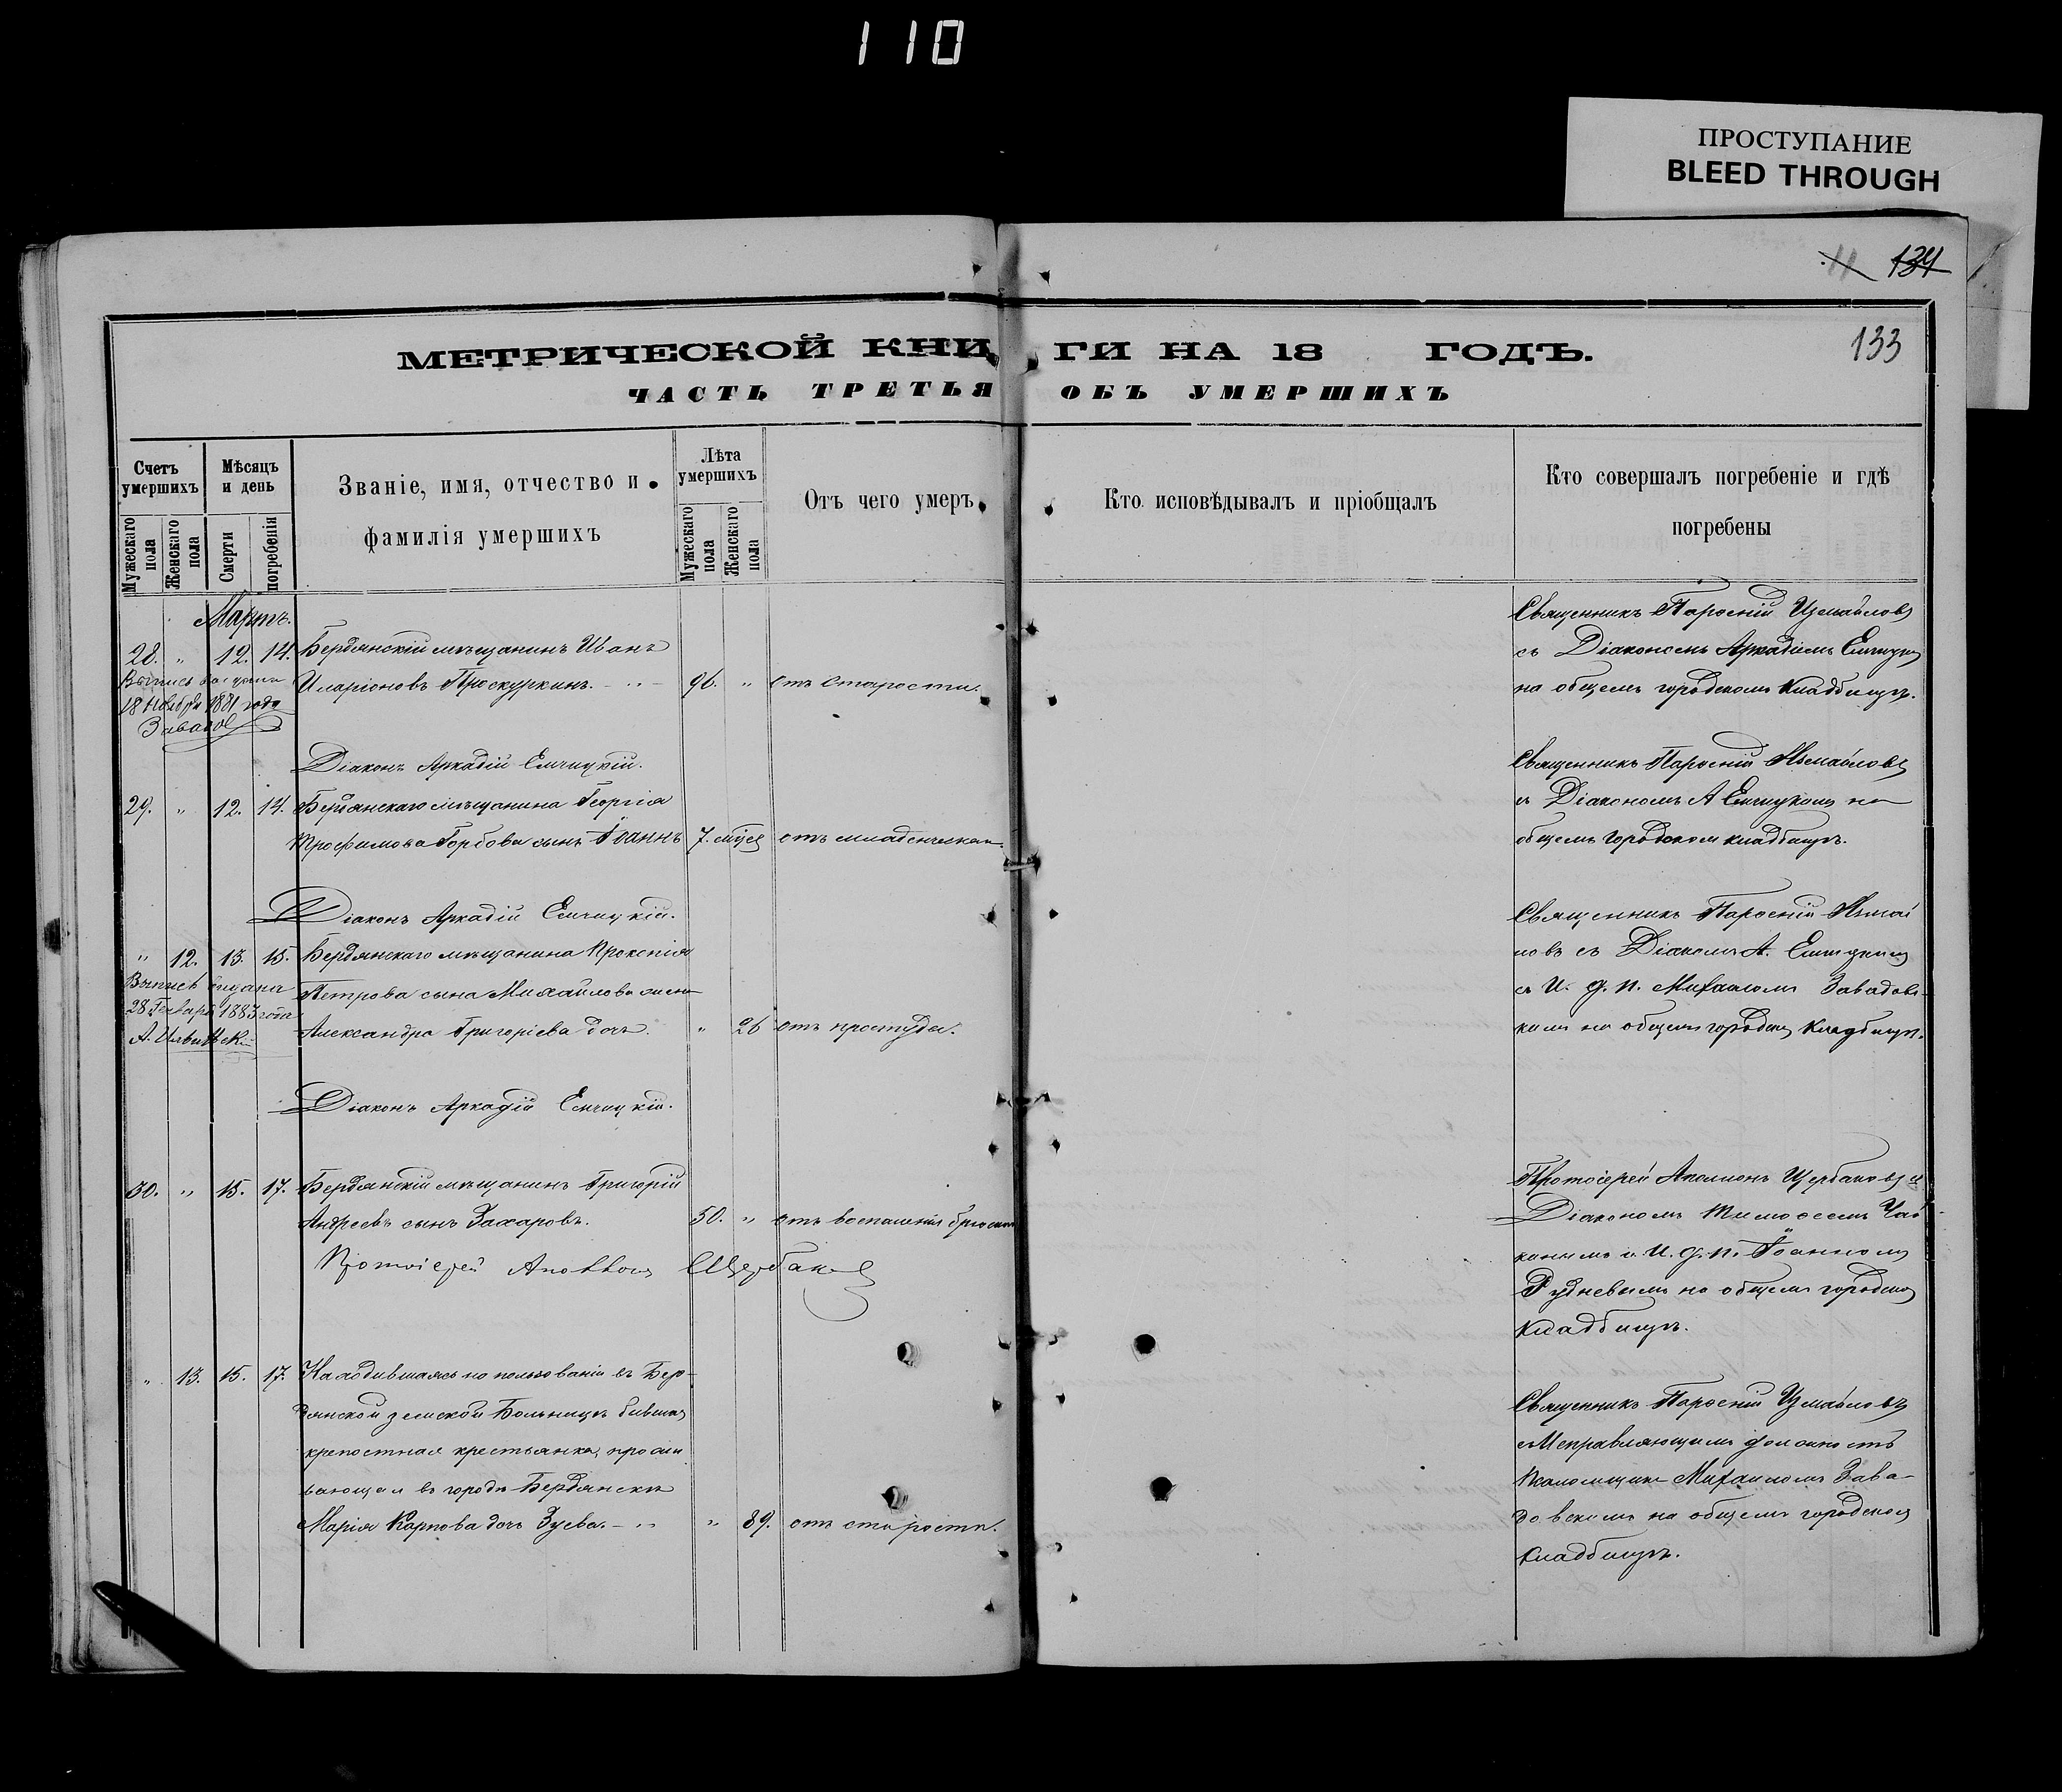 110
ПРОСТУПАНИЕ
BLEED THROUGH
11 134
133
МЕТРИЧЕСКОЙ КНИГИ НА 18 ГОДЪ.
ЧАСТЬ ТРЕТЬЯ ОБЪ УМЕРШИХЪ
Счетъ умершихъ
Мужескаго пола
Женскаго пола
Мѣсяцъ и день
Смерти
погребенія
Званіе, имя, отчество и фамилія умершихъ
Лѣта умершихъ
Мужескаго пола
Женскаго пола
Отъ чего умеръ
Кто исповѣдывалъ и пріобщалъ
Кто совершалъ погребеніе и гдѣ
погребены
Мартъ.
28. " 12. 14. Бердянскій мѣщанинъ Иванъ
Иларіоновъ Проскуркинъ. 96. " отъ старости.
Выпись выдана
18 Ноября 1881 года
Священникъ Парѳеній Измайловъ
съ Діакономъ Аркадіемъ Емчицкимъ
на общемъ городскомъ кладбищѣ.
Діаконъ Аркадій Емчицкій.
29. " 12. 14. Бердянскаго мѣщанина Георгія
Трофимова Горбова сынъ Іоаннъ 7. мѣся отъ младенческой
Священникъ Парѳеній Измайловъ
съ Діакономъ А Емчицкимъ на
общемъ городском кладбищѣ.
Діаконъ Аркадій Емчицкій.
" 12. 13. 15. Бердянскаго мѣщанина Прокопія
Петрова сына Михайлова жена
Александра Григоріева дочь. " 26 отъ простуды.
Выпись выдана
28 Генваря 1883 года
Священникъ Парѳеній Измай
ловъ съ Діаконъ А. Емчицкимъ
съ И. д. п. Михаиломъ Завадов-
кимъ на общемъ городском кладбищѣ.
Діаконъ Аркадій Емчицкій.
30. " 15. 17. Бердянскій мѣщанинъ Григорій
Андреевъ сынъ Захаровъ. 50. " отъ воспаленія брюшины
Протоіерей Аполлонъ Щербаковъ
Протоіерей Аполлонъ Щербаковъ съ
Діакономъ Тимоѳеемъ Чай
кинымъ и И. д. п. Іоанномъ
Рудневымъ на общемъ городском
кладбищѣ.
" 13. 15. 17. Находившаяся на пользованіи въ Бер-
дянской земской Больницѣ бывшая
крепостная крестьянка, прожи
вающая въ городѣ Бердянскѣ
Марія Карпова дочь Зуева. " 89. отъ старости.
Священникъ Парѳеній Измайловъ
съ Исправляющимъ должность
Псаломщика Михаиломъ Зава-
довскимъ на общемъ городском
кладбищѣ.